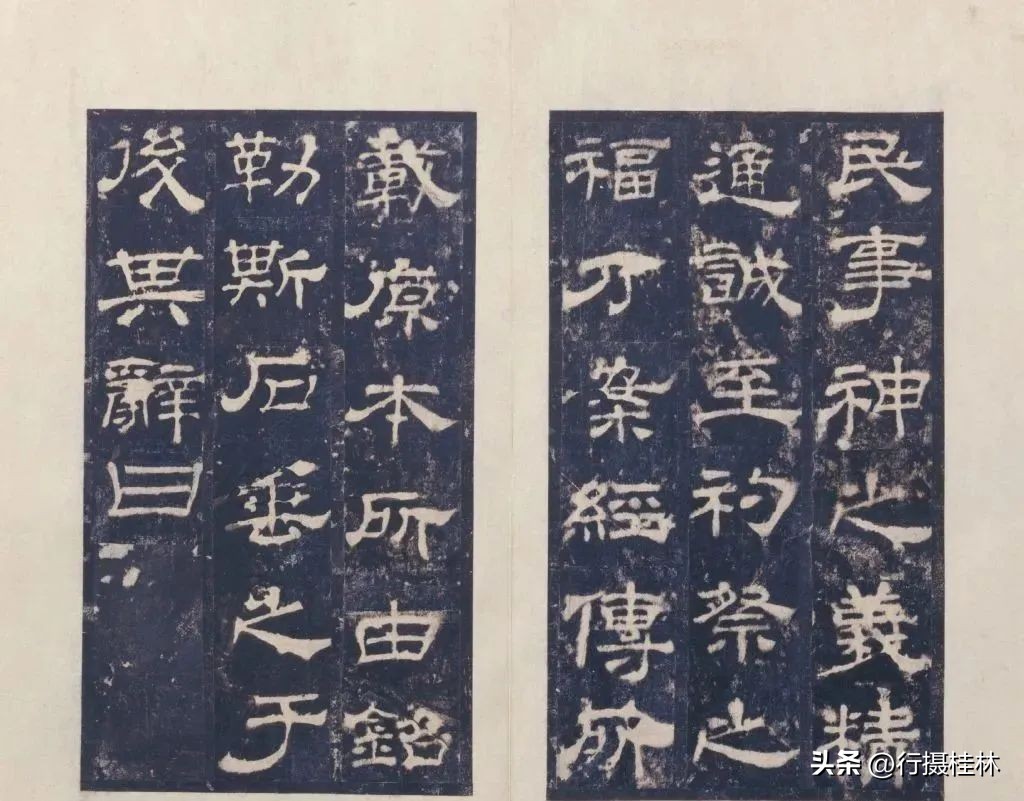 民事神之義精
通誠至礿祭之
福乃案經傳所
載原本所由銘
勒斯石垂之于
後其辭曰
头条 @行摄桂林